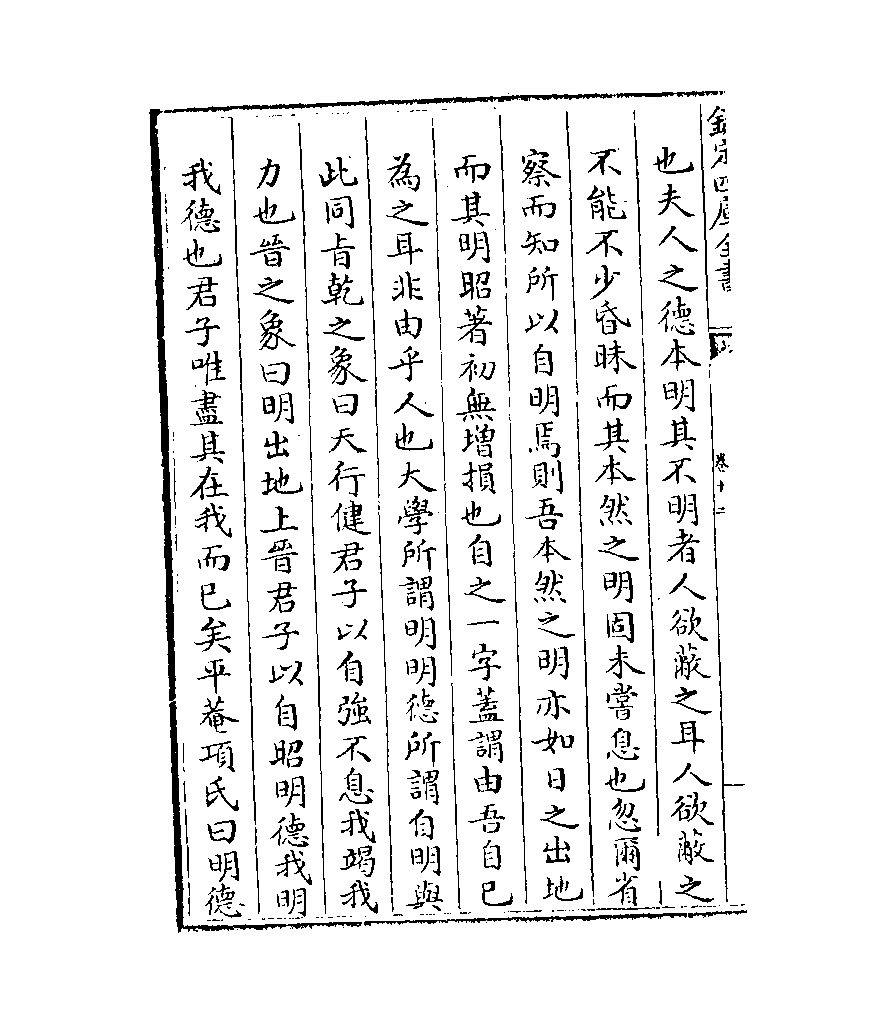 欽定四庫全書
卷十二
也夫人之德本明其不明者人欲蔽之耳人欲蔽之
不能不少昏昧而其本然之明固未嘗息也忽爾省
察而知所以自明焉則吾本然之明亦如日之出地
而其明昭著初無增損也自之一字蓋謂由吾自已
為之耳非由乎人也大學所謂明明德所謂自明與
此同旨乾之象曰天行健君子以自強不息我竭我
力也晉之象曰明出地上晉君子以自昭明德我明
我德也君子唯盡其在我而已矣平菴項氏曰明德